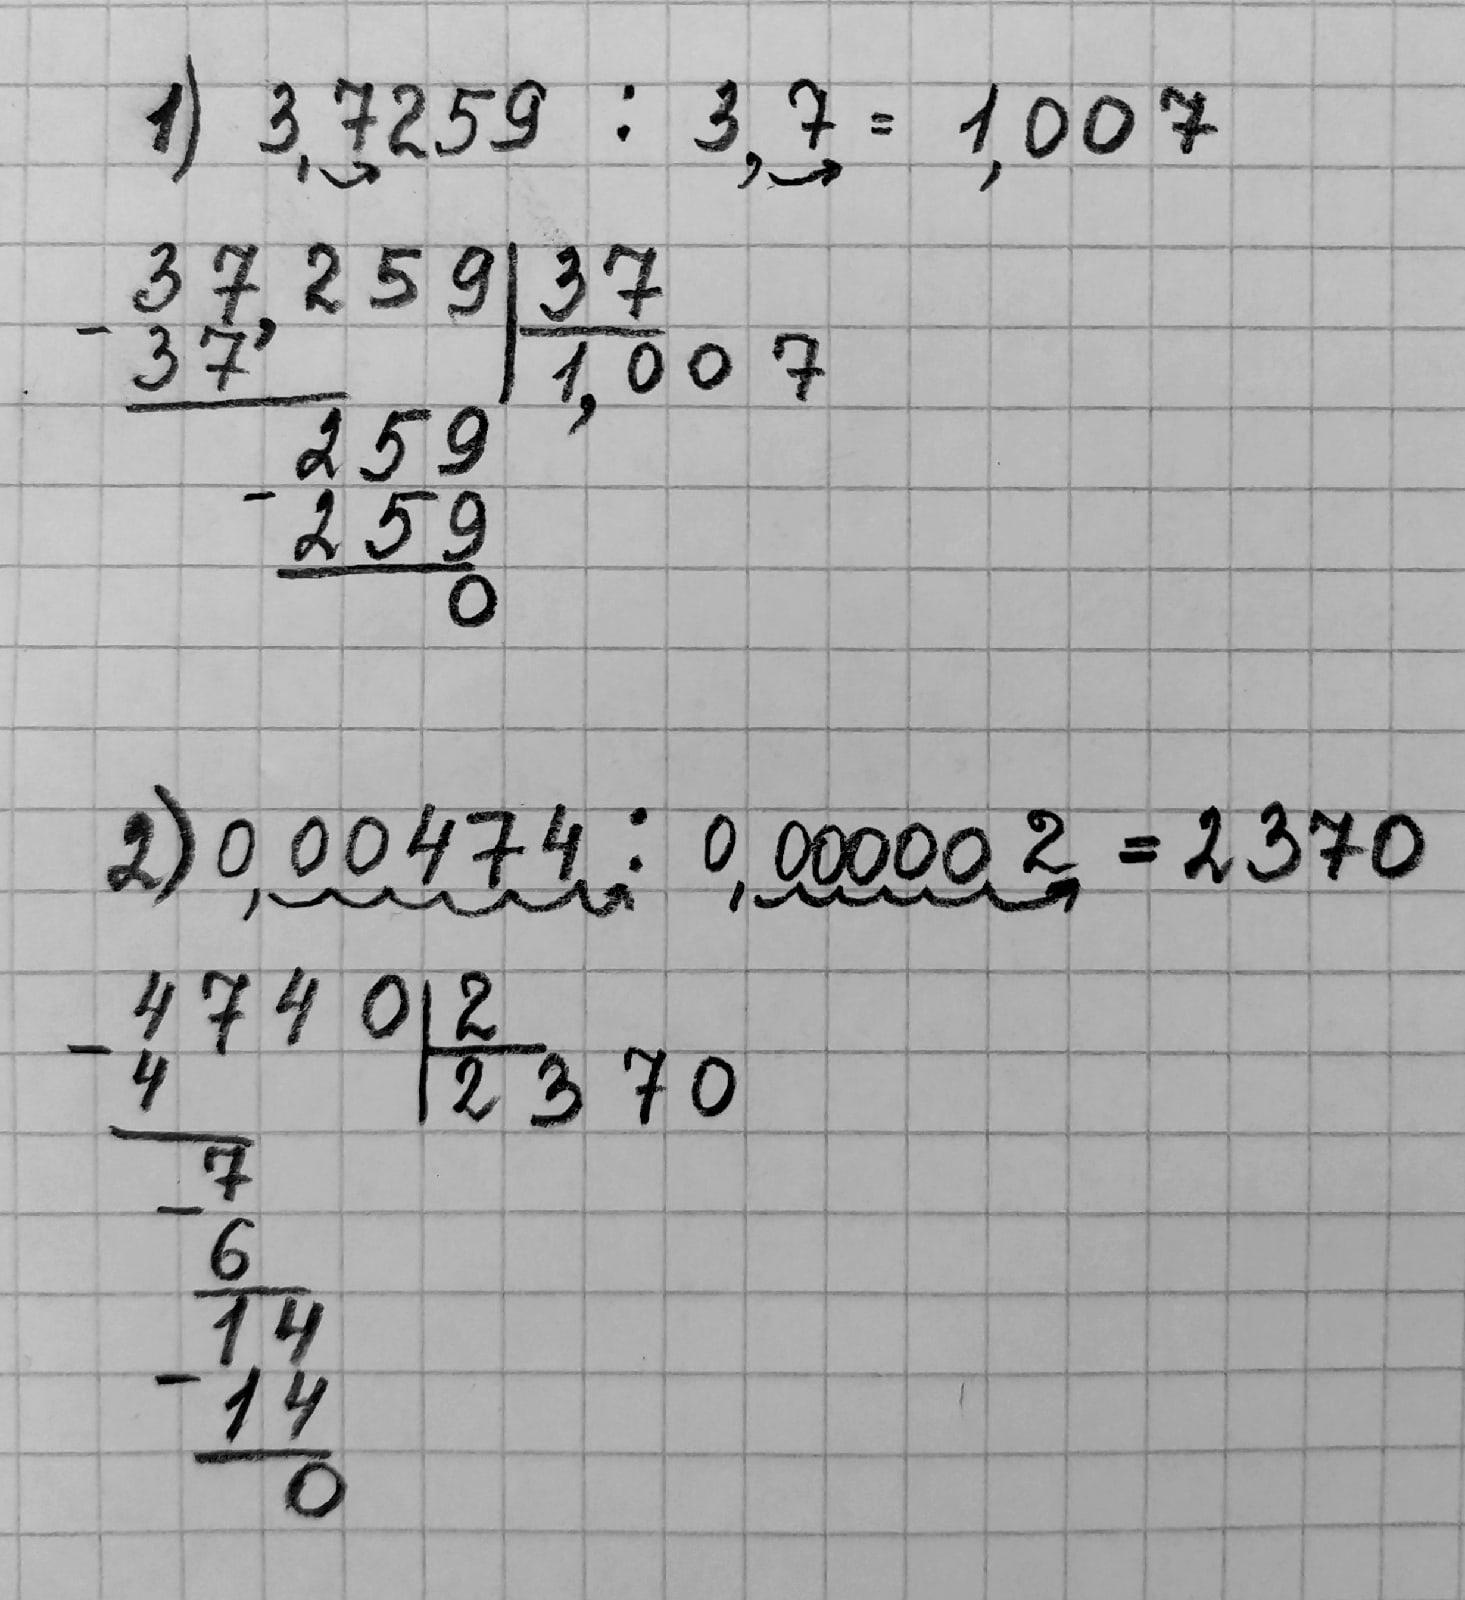 1) 3,7259 : 3,7 = 1,007
37,259 | 37
- 37, 1,007
259
- 259
0
2) 0,00474 : 0,000002 = 2370
4740 | 2
- 4 2370
7
- 6
14
- 14
0